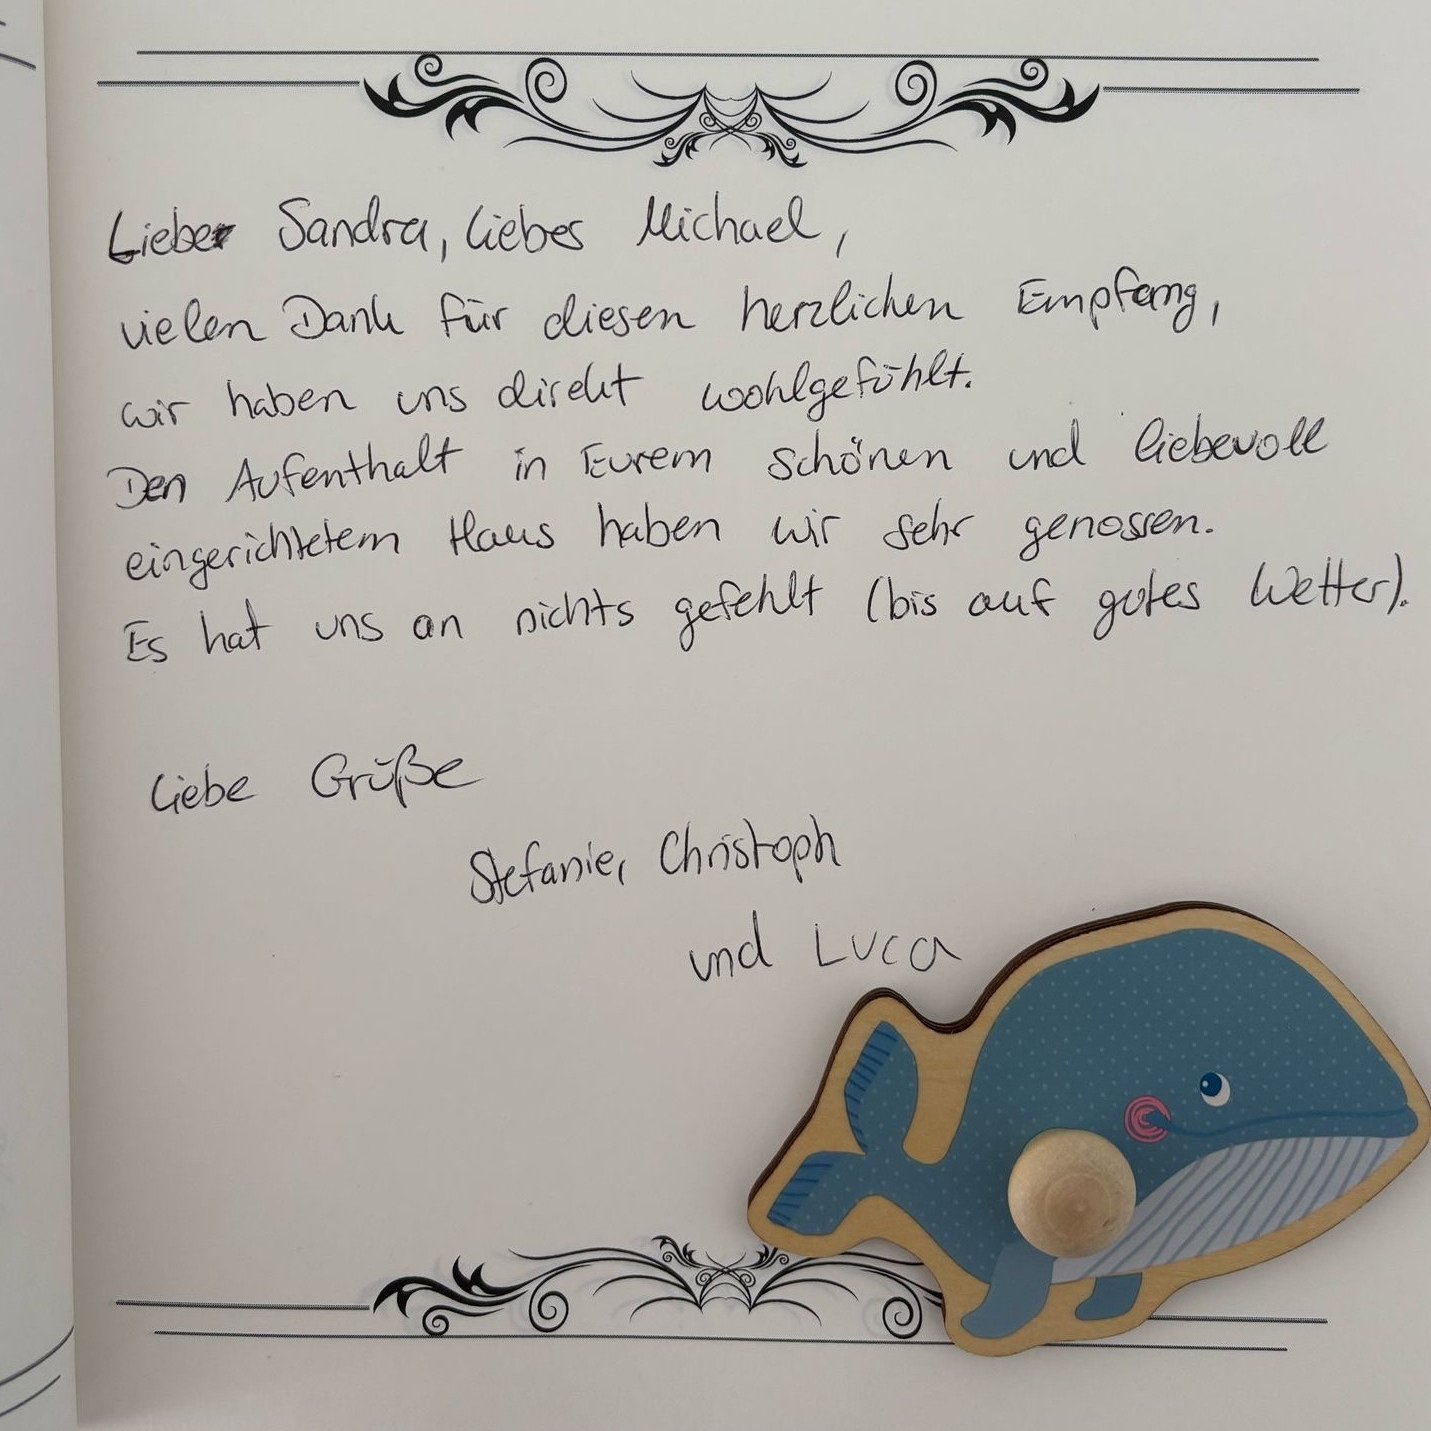 Liebe Sandra, liebes Michael,
vielen Dank für diesen herzlichen Empfang,
wir haben uns direkt wohlgefühlt.
Den Aufenthalt in Eurem schönen und liebevoll
eingerichtetem Haus haben wir sehr genossen.
Es hat uns an nichts gefehlt (bis auf gutes Wetter).
Liebe Grüße
Stefanie, Christoph
und Luca